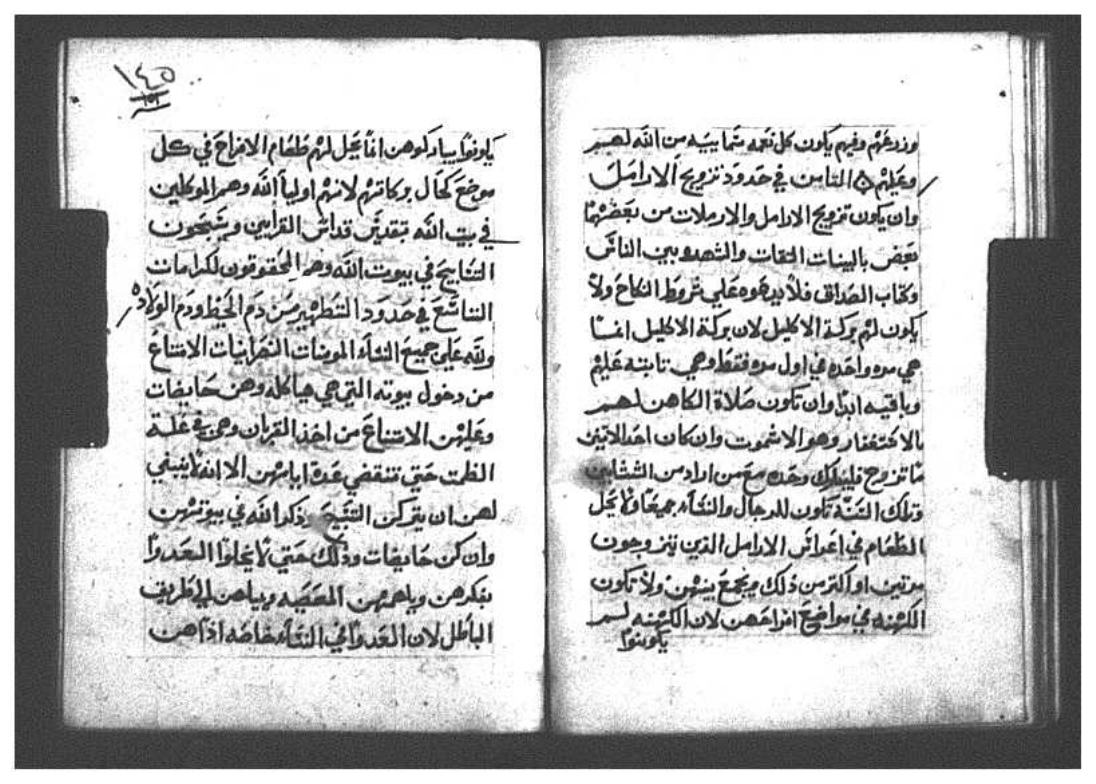 وزرعهم وفيهم يكون كل نعمه سمابيه من الله لهم
وعليهم ۞ الثامن في حدود تزويج الارامل
وان يكون تزويج الارامل والارملات من بعضهما
بعض بالبينات التقات والشهود بين الناس
وكتاب الصداق فلا يدعوه علي شروط النكاح ولا
يكون لهم بركة الاكليل لان بركة الاكليل انما
هي مره واحده في اول مره فقط وهي تابته عليهم
وباقيه ابدا وان تكون صلاة الكاهن لهم
بالاستغفار وهو الاشموت وان كان احد الاتنين
ما تزوج فليبارك وحده مع من اراد من
وتلك السنة تكون للرجال والنساء جميعا ولا يحل
الطعام في اعراس الارامل الذين تيزوجون
مرتين او اكتر من ذلك ويجمع بينهن ولا تكون
الكهنه في مواضع افراحهن لان الكهنه لم
يكونوا
١٤٥
١٥١
يكونوا يباركوهن انما يحل لهم طعام الافراح في كل
موضع كحال بركاتهم لانهم اوليا الله وهم الموكلين
في بيت الله بتقديس قداس القرابين ويسبحون
التسابيح في بيوت الله وهم المحقوقون لكرامات
التاسع في حدود التطهير من دم الحيط ودم الولاده
ولله علي جميع النساء المومنات النصرانيات الامتناع
من دخول بيوته التي هي هياكله وهن حايضات
وعليهن الامتناع من اخذ القربان وهي في علة
الطمت حتي تنقضي عدة ايامهن الا انه لا ينبغي
لهن ان يتركن التسبيح وذكر الله في بيوتهن
وان كن حايضات وذلك حتي لا يخلوا العدوا
بفكرهن وياهن الي طريق
الباطل لان العدوا في النساء خاصه اذا هن